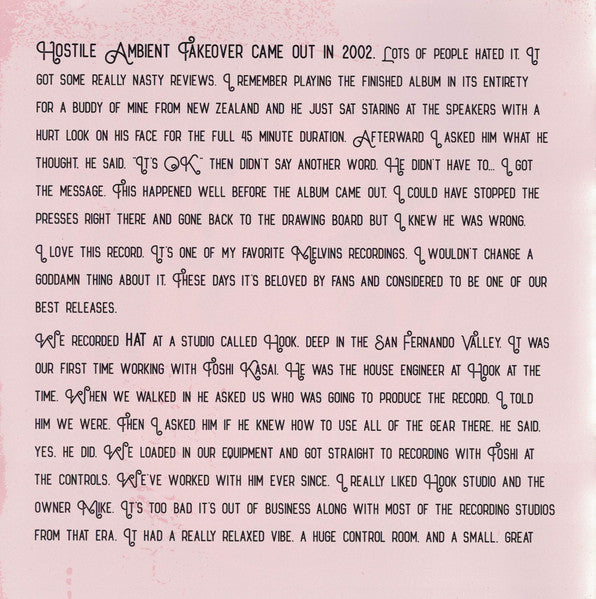 Hostile Ambient Takeover came out in 2002. Lots of people hated it. It
got some really nasty reviews. I remember playing the finished album in its entirety
for a buddy of mine from new zealand and he just sat staring at the speakers with a
hurt look on his face for the full 45 minute duration. Afterward I asked him what he
thought. he said, "It's OK" then didn't say another word. He didn't have to... I got
the message. This happened well before the album came out. I could have stopped the
presses right there and gone back to the drawing board but I knew he was wrong.
I love this record. It's one of my favorite Melvins recordings. I wouldn't change a
goddamn thing about it. These days it's beloved by fans and considered to be one of our
best releases.
We recorded HAT at a studio called Hook, deep in the San Fernando Valley. It was
our first time working with Toshi Kasai. He was the house engineer at Hook at the
time. When we walked in he asked us who was going to produce the record. I told
him we were. Then I asked him if he knew how to use all of the gear there. he said,
yes, he did. We loaded in our equipment and got straight to recording with Toshi at
the controls. We've worked with him ever since. I really liked Hook studio and the
owner Mike. It's too bad it's out of business along with most of the recording studios
from that era. It had a really relaxed vibe, a huge control room, and a small, great